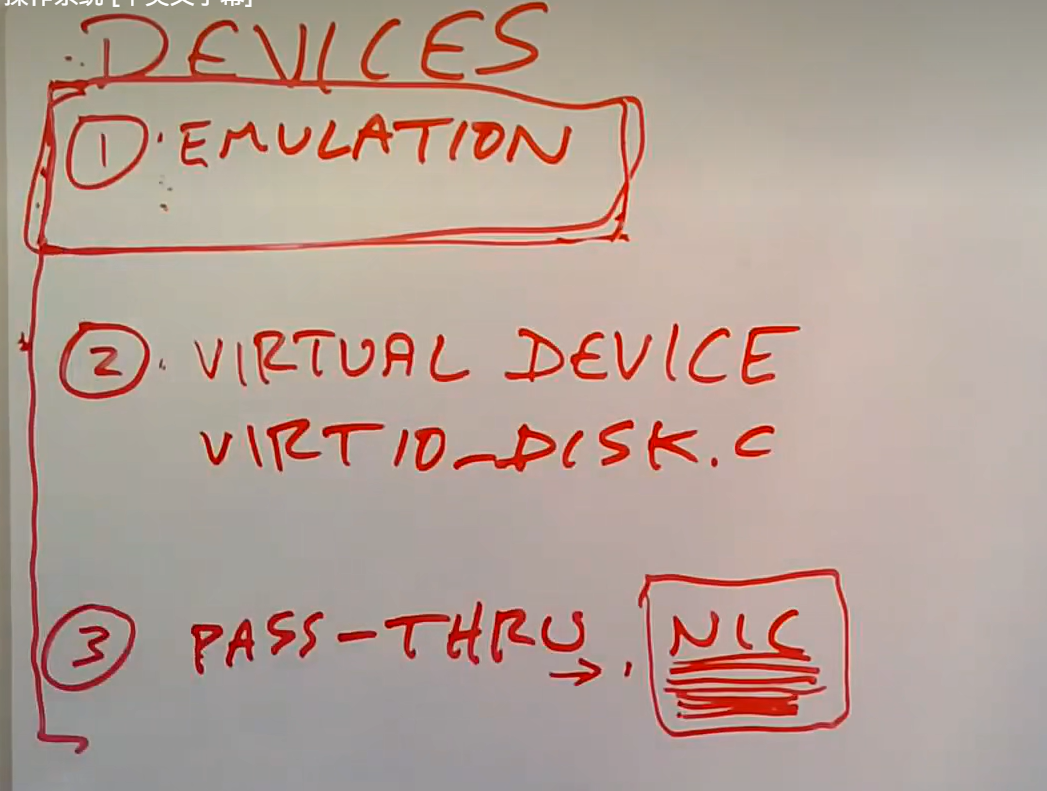 操作系统 [中英文字幕]
DEVICES
① EMULATION
② VIRTUAL DEVICE
VIRTIO_DISK.C
③ PASS-THRU → NIC